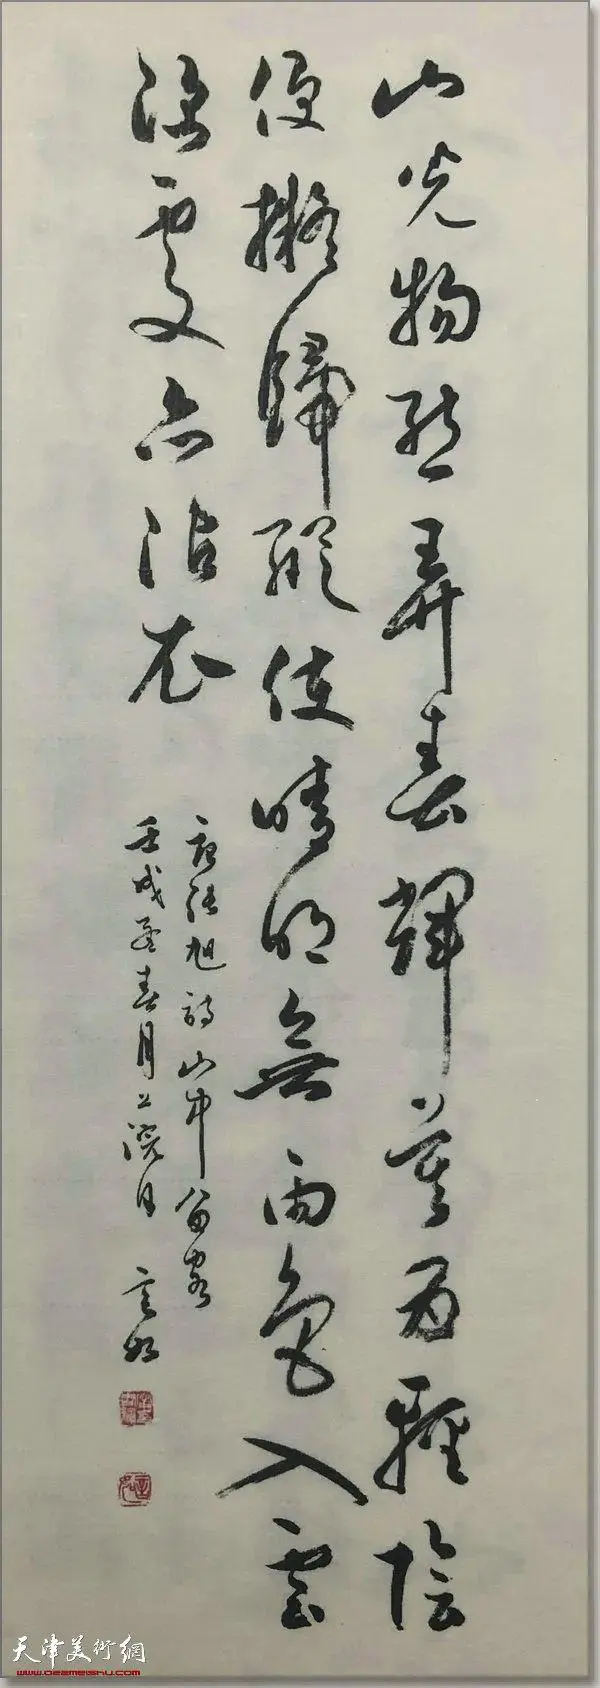 山光物態弄春輝莫為輕陰
便擬歸縱使晴明無雨色入雲
深處亦沾衣
唐張旭詩山中留客
壬戌孟春月上浣日 言如
天津美術網